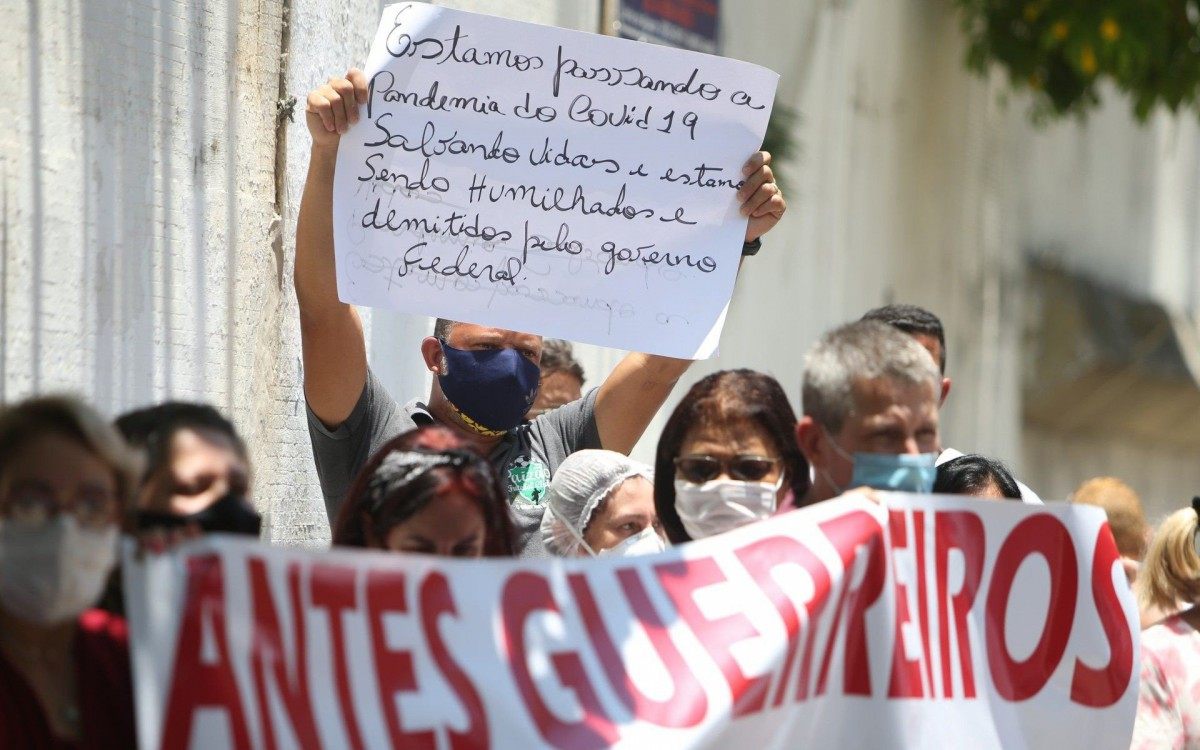 Estamos passando a
Pandemia do Covid 19
Salvando vidas e estamo
Sendo Humilhados e
demitidos pelo governo
Federal.
ANTES GUERREIROS